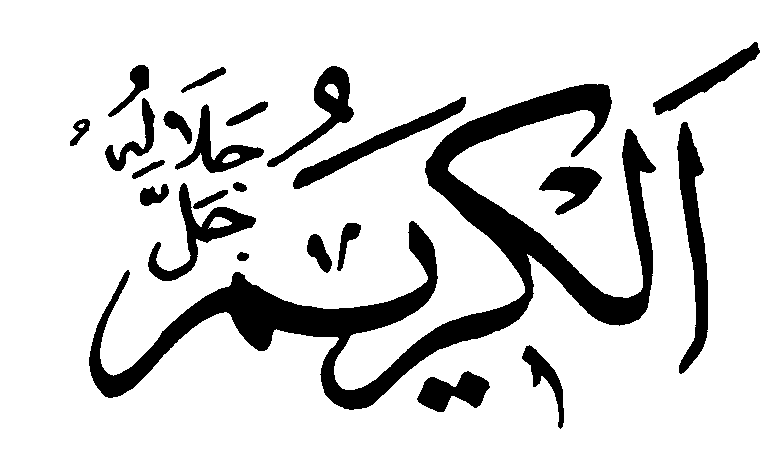 الكَرِيمُ
جَلَّ جَلَالُهُ